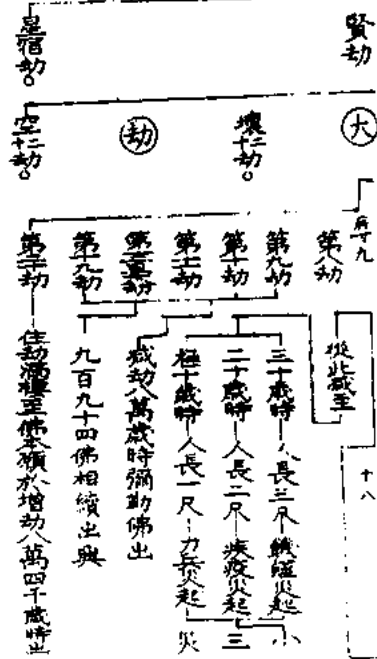 賢劫
星宿劫。
大
壞二十劫。
劫
空二十劫。
第八劫
第九劫
第十劫
第十一劫
第十九劫
第二十劫
從此減至
三十歲時 人長三尺 饑饉災起
二十歲時 人長二尺 疾疫災起
極十歲時 人長一尺 刀兵災起
小
三
災
減劫八萬歲時彌勒佛出
九百九十四佛相續出興
住劫滿樓至佛本願於增劫八萬四千歲時出
十八